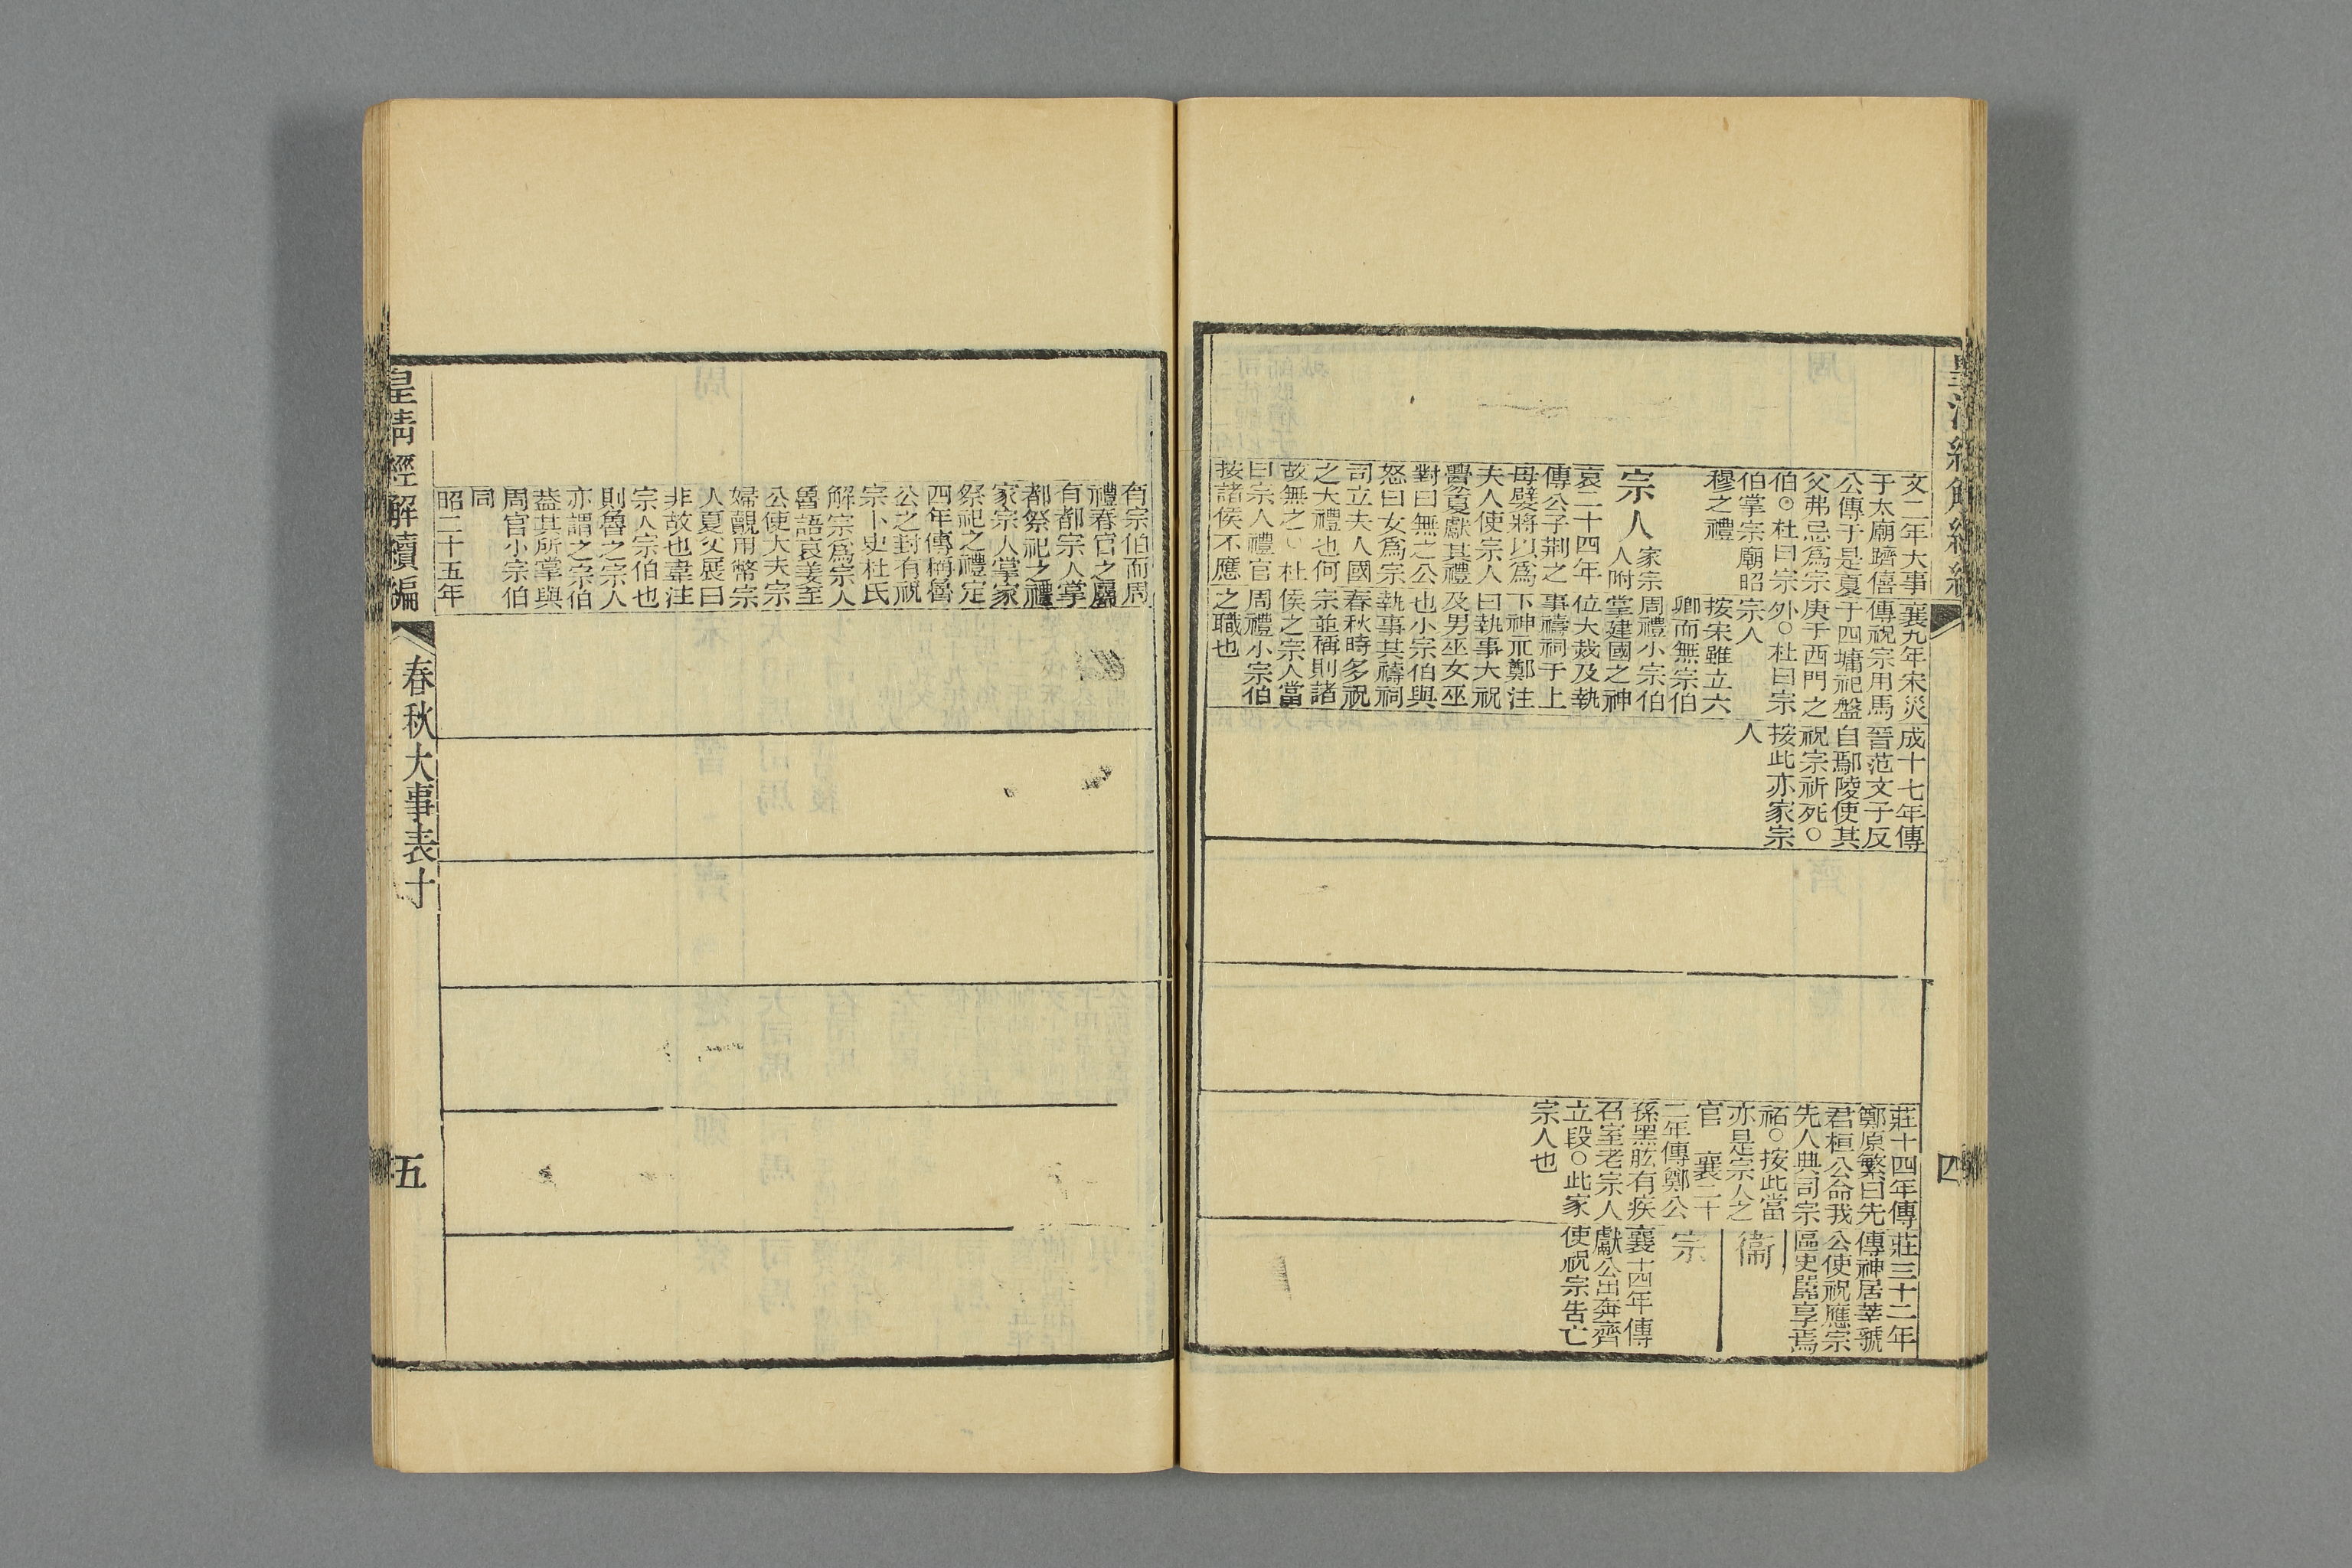 文二年大事
于太廟躋僖
公傳于是夏
父弗忌爲宗
伯○杜曰宗
伯掌宗廟昭
穆之禮
宗人
家宗
人附
哀二十四年
傳公子荆之
母嬖將以爲
夫人使宗人
釁夏獻其禮
對曰無之公
怒曰女爲宗
司立夫人國
之大禮也何
故無之○杜
曰宗人禮官
按諸侯不應
襄九年宋災
傳祝宗用馬
于四墉祀盤
庚于西門之
外○杜曰宗
宗人
按宋雖立六
卿而無宗伯
周禮小宗伯
掌建國之神
位大烖及執
事禱祠于上
下神示鄭注
曰執事大祝
及男巫女巫
也小宗伯與
執事其禱祠
春秋時多祝
宗並稱則諸
侯之宗人當
周禮小宗伯
之職也
成十七年傳
晉范文子反
自鄢陵使其
祝宗祈死○
按此亦家宗
人
莊十四年傳
鄭原繁曰先
君桓公命我
先人典司宗
祏○按此當
亦是宗人之
官 襄二十
二年傳鄭公
孫黑肱有疾
召室老宗人
立段○此家
宗人也
莊三十二年
傳神居莘虢
公使祝應宗
區史嚚享焉
衞
宗
襄十四年傳
獻公出奔齊
使祝宗告亡
四
有宗伯而周
禮春官之屬
有都宗人掌
都祭祀之禮
家宗人掌家
祭祀之禮定
四年傳稱魯
公之封有祝
宗卜史杜氏
解宗爲宗人
魯語哀姜至
公使大夫宗
婦覿用幣宗
人夏父展曰
非故也韋注
宗人宗伯也
則魯之宗人
亦謂之宗伯
葢其所掌與
周官小宗伯
同
昭二十五年
皇清經解續編
春秋大事表十
五